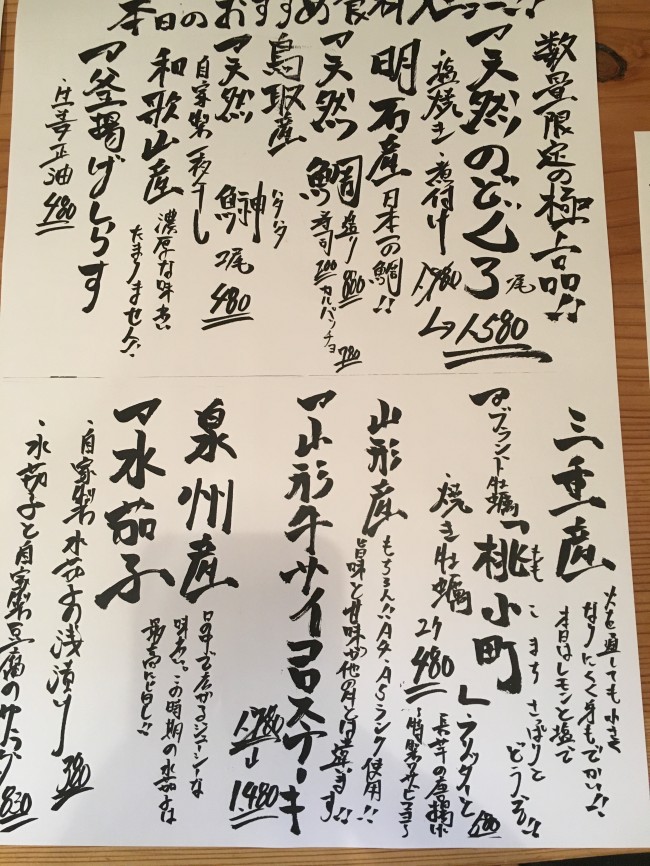 本日のおすすめ食材メニュー!!
数量限定の極上品!!
天然のどくろ 尾
・塩焼き・煮付け 1,780
→1,580
明石産 日本一の鯛!!
天然 鯛 造り 880
寿司 200 カルパッチョ 780
鳥取産
天然 鰰 2尾 480
ハタハタ
自家製一夜干し
和歌山産 濃厚な味わい
たまりません!!
釜揚げしらす
・生姜正油 480
三重産 火を通しても小さく
なりにくく身もでかい!!
本日はレモンと塩で
さっぱりと
どうぞ!!
ブランド牡蠣「桃小町」
もも こまち
・焼き牡蠣 2ケ 480
・フリッターと
長芋の唐揚げ
山形産 もちろん!!A4、A5ランク使用!!
旨味と甘味が他の肉とは違います!!
山形牛サイコロステーキ
1,780
↓
1,480
泉州産 口中で広がるジューシーな
味わい。この時期の水茄子は
最高に旨し!!
水茄子
・自家製水茄子の浅漬け 380
・水茄子と自家製豆腐のサラダ 830